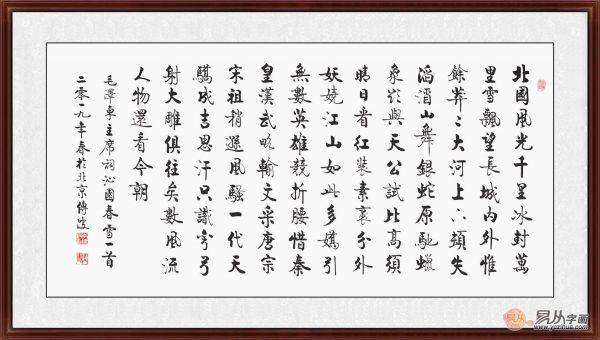 北國風光千里冰封萬
里雪飄望長城內外惟
餘莽々大河上下頓失
滔滔山舞銀蛇原馳蠟
象欲與天公試比高須
晴日看紅裝素裹分外
妖嬈江山如此多嬌引
無數英雄競折腰惜秦
皇漢武略輸文采唐宗
宋祖稍遜風騷一代天
驕成吉思汗只識彎弓
射大雕俱往矣數風流
人物還看今朝
毛澤東主席詞沁園春雪一首
二零一九年春於北京傅波
易从字画
www.yczihua.com